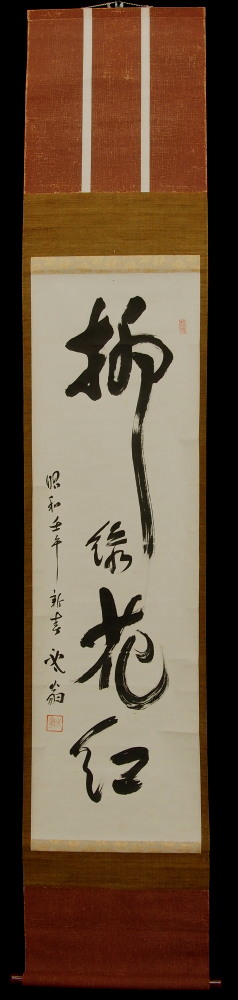 柳緑花紅
昭和壬午新春
翁